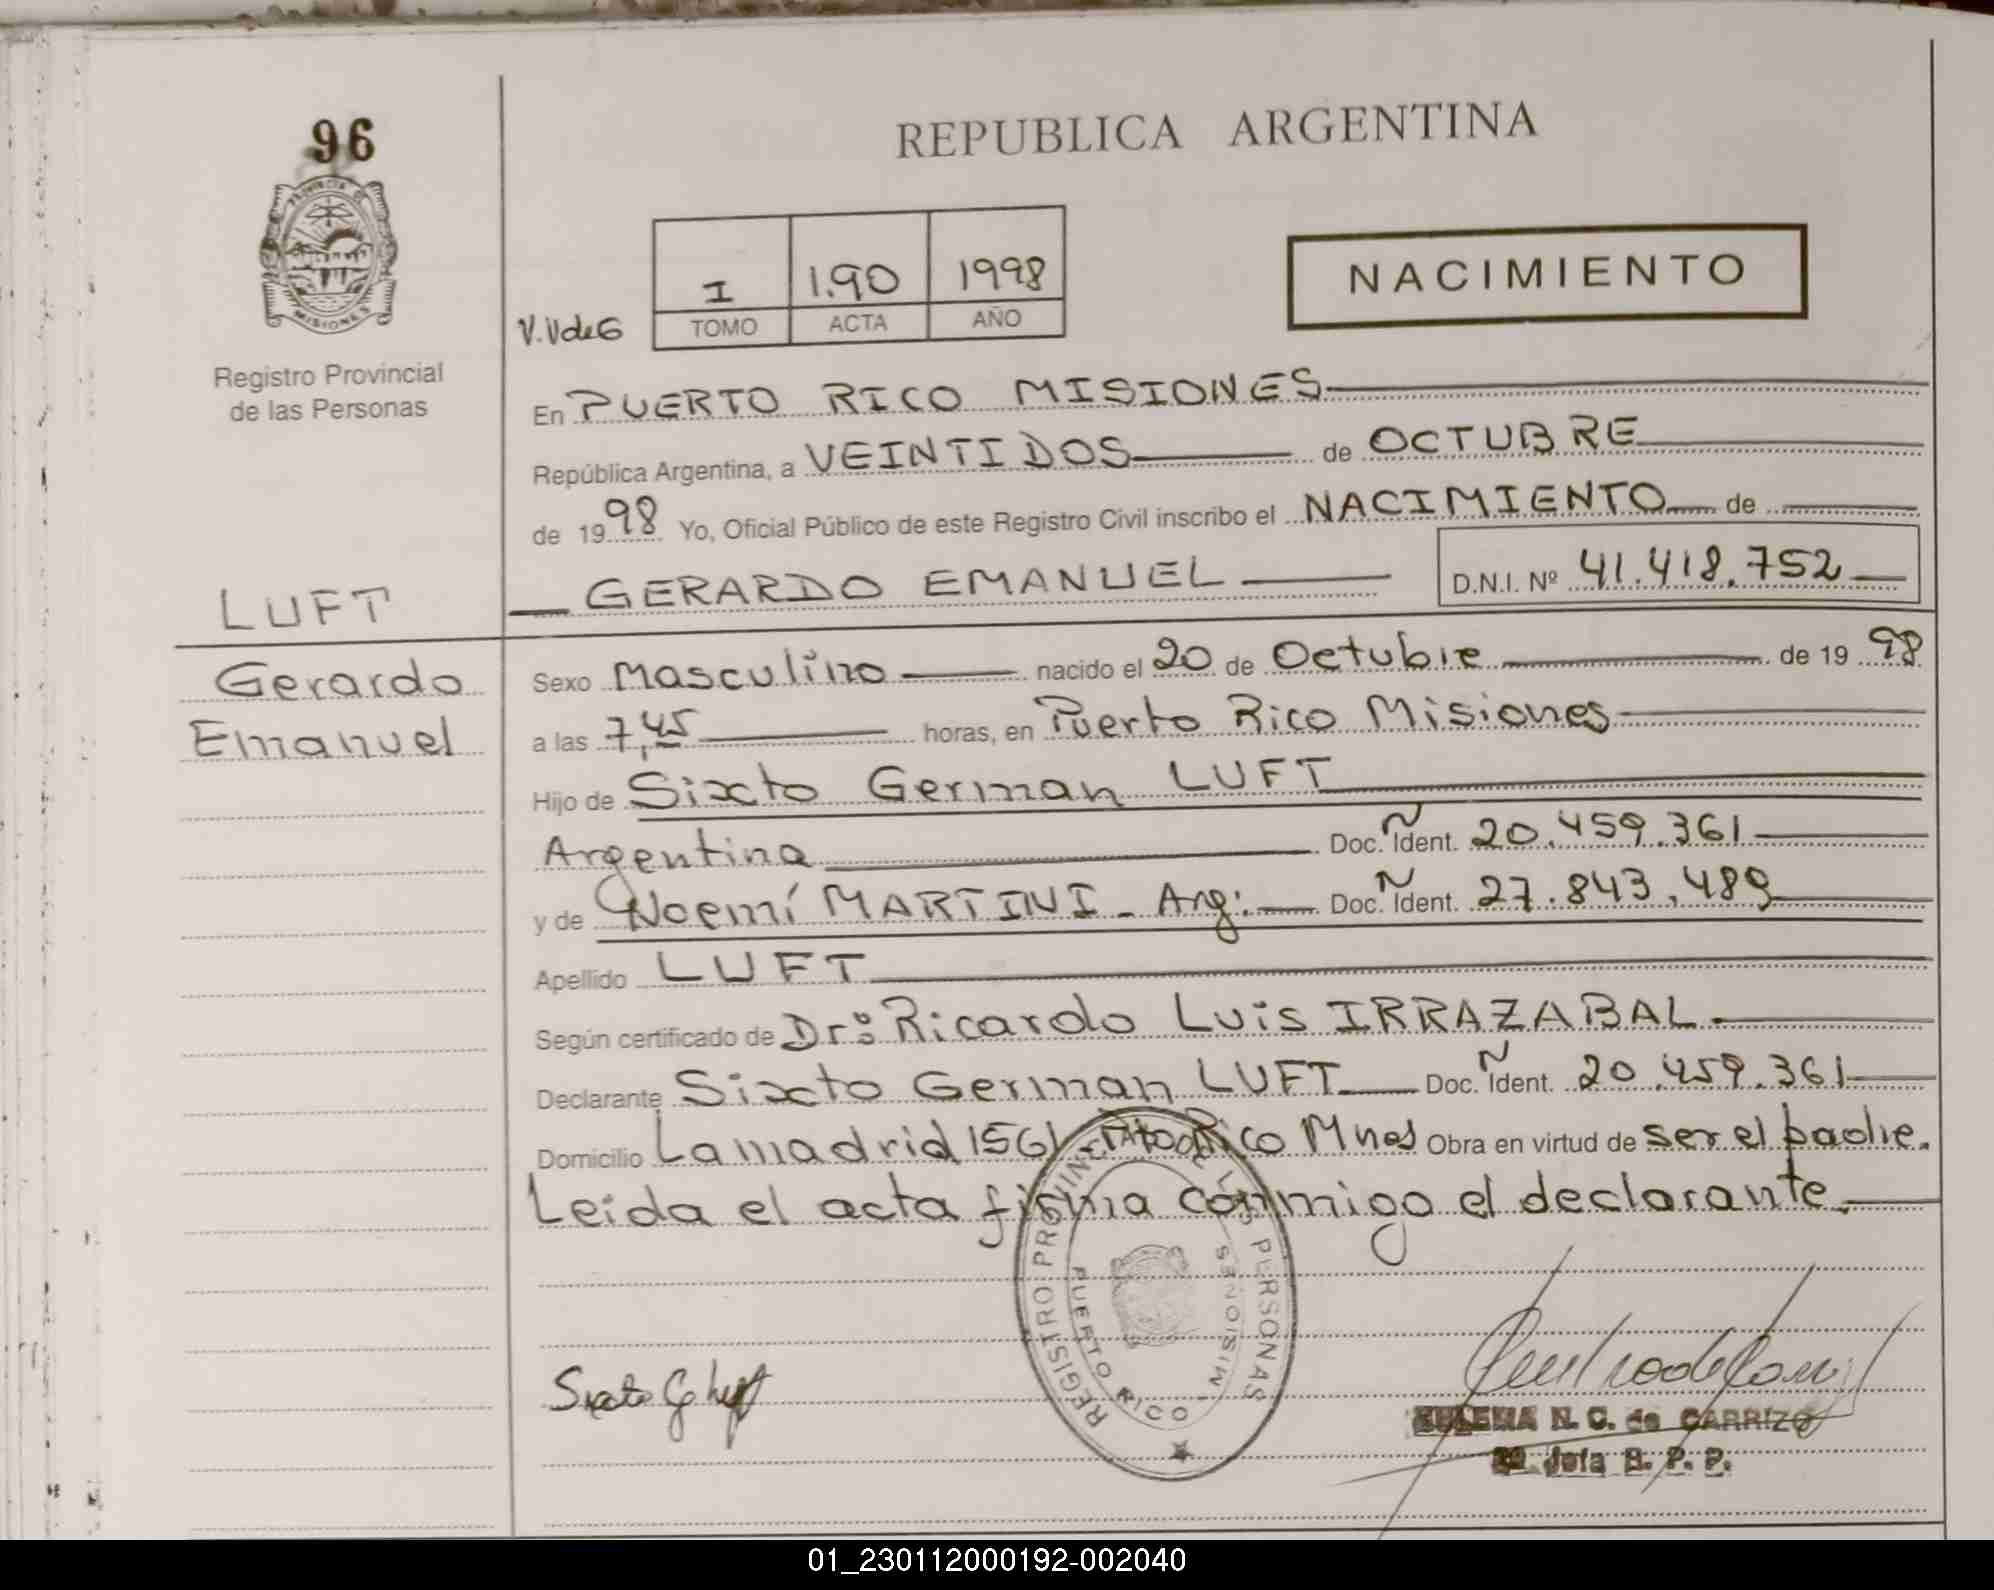 96
PROVINCIA DE
MISIONES
Registro Provincial
de las Personas
LUFT
Gerardo
Emanuel
REPUBLICA ARGENTINA
V.V de G
I 1.90 1998
TOMO ACTA AÑO
NACIMIENTO
En PUERTO RICO MISIONES
República Argentina, a VEINTIDOS de OCTUBRE
de 1998 Yo, Oficial Público de este Registro Civil inscribo el NACIMIENTO de
GERARDO EMANUEL D.N.I. Nº 41.418.752
Sexo Masculino nacido el 20 de Octubre de 1998
a las 7,45 horas, en Puerto Rico Misiones
Hijo de Sixto German LUFT
Argentina Doc. Ñ Ident. 20.459.361
y de Noemí MARTINI - Arg: Doc. Ñ Ident. 27.843.489
Apellido LUFT
Según certificado de Dr: Ricardo Luis IRRAZABAL.
Declarante Sixto German LUFT Doc. Ñ Ident. 20.459.361
Domicilio Lamadrid 1561 Pto Rico Mnes Obra en virtud de ser el padre.
Leida el acta firma conmigo el declarante.
REGISTRO PROVINCIAL DE LAS PERSONAS
PUERTO RICO MISIONES
Sixto G Luft
ZULEMA N. C. de CARRIZO
Jefa R. P. P.
01_230112000192-002040